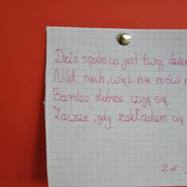 Dziś spódnico jest twój dzień
Nikt nech, więc nie mówi n
Bardzo dobrze czuję się
Zawsze, gdy zakładam cię